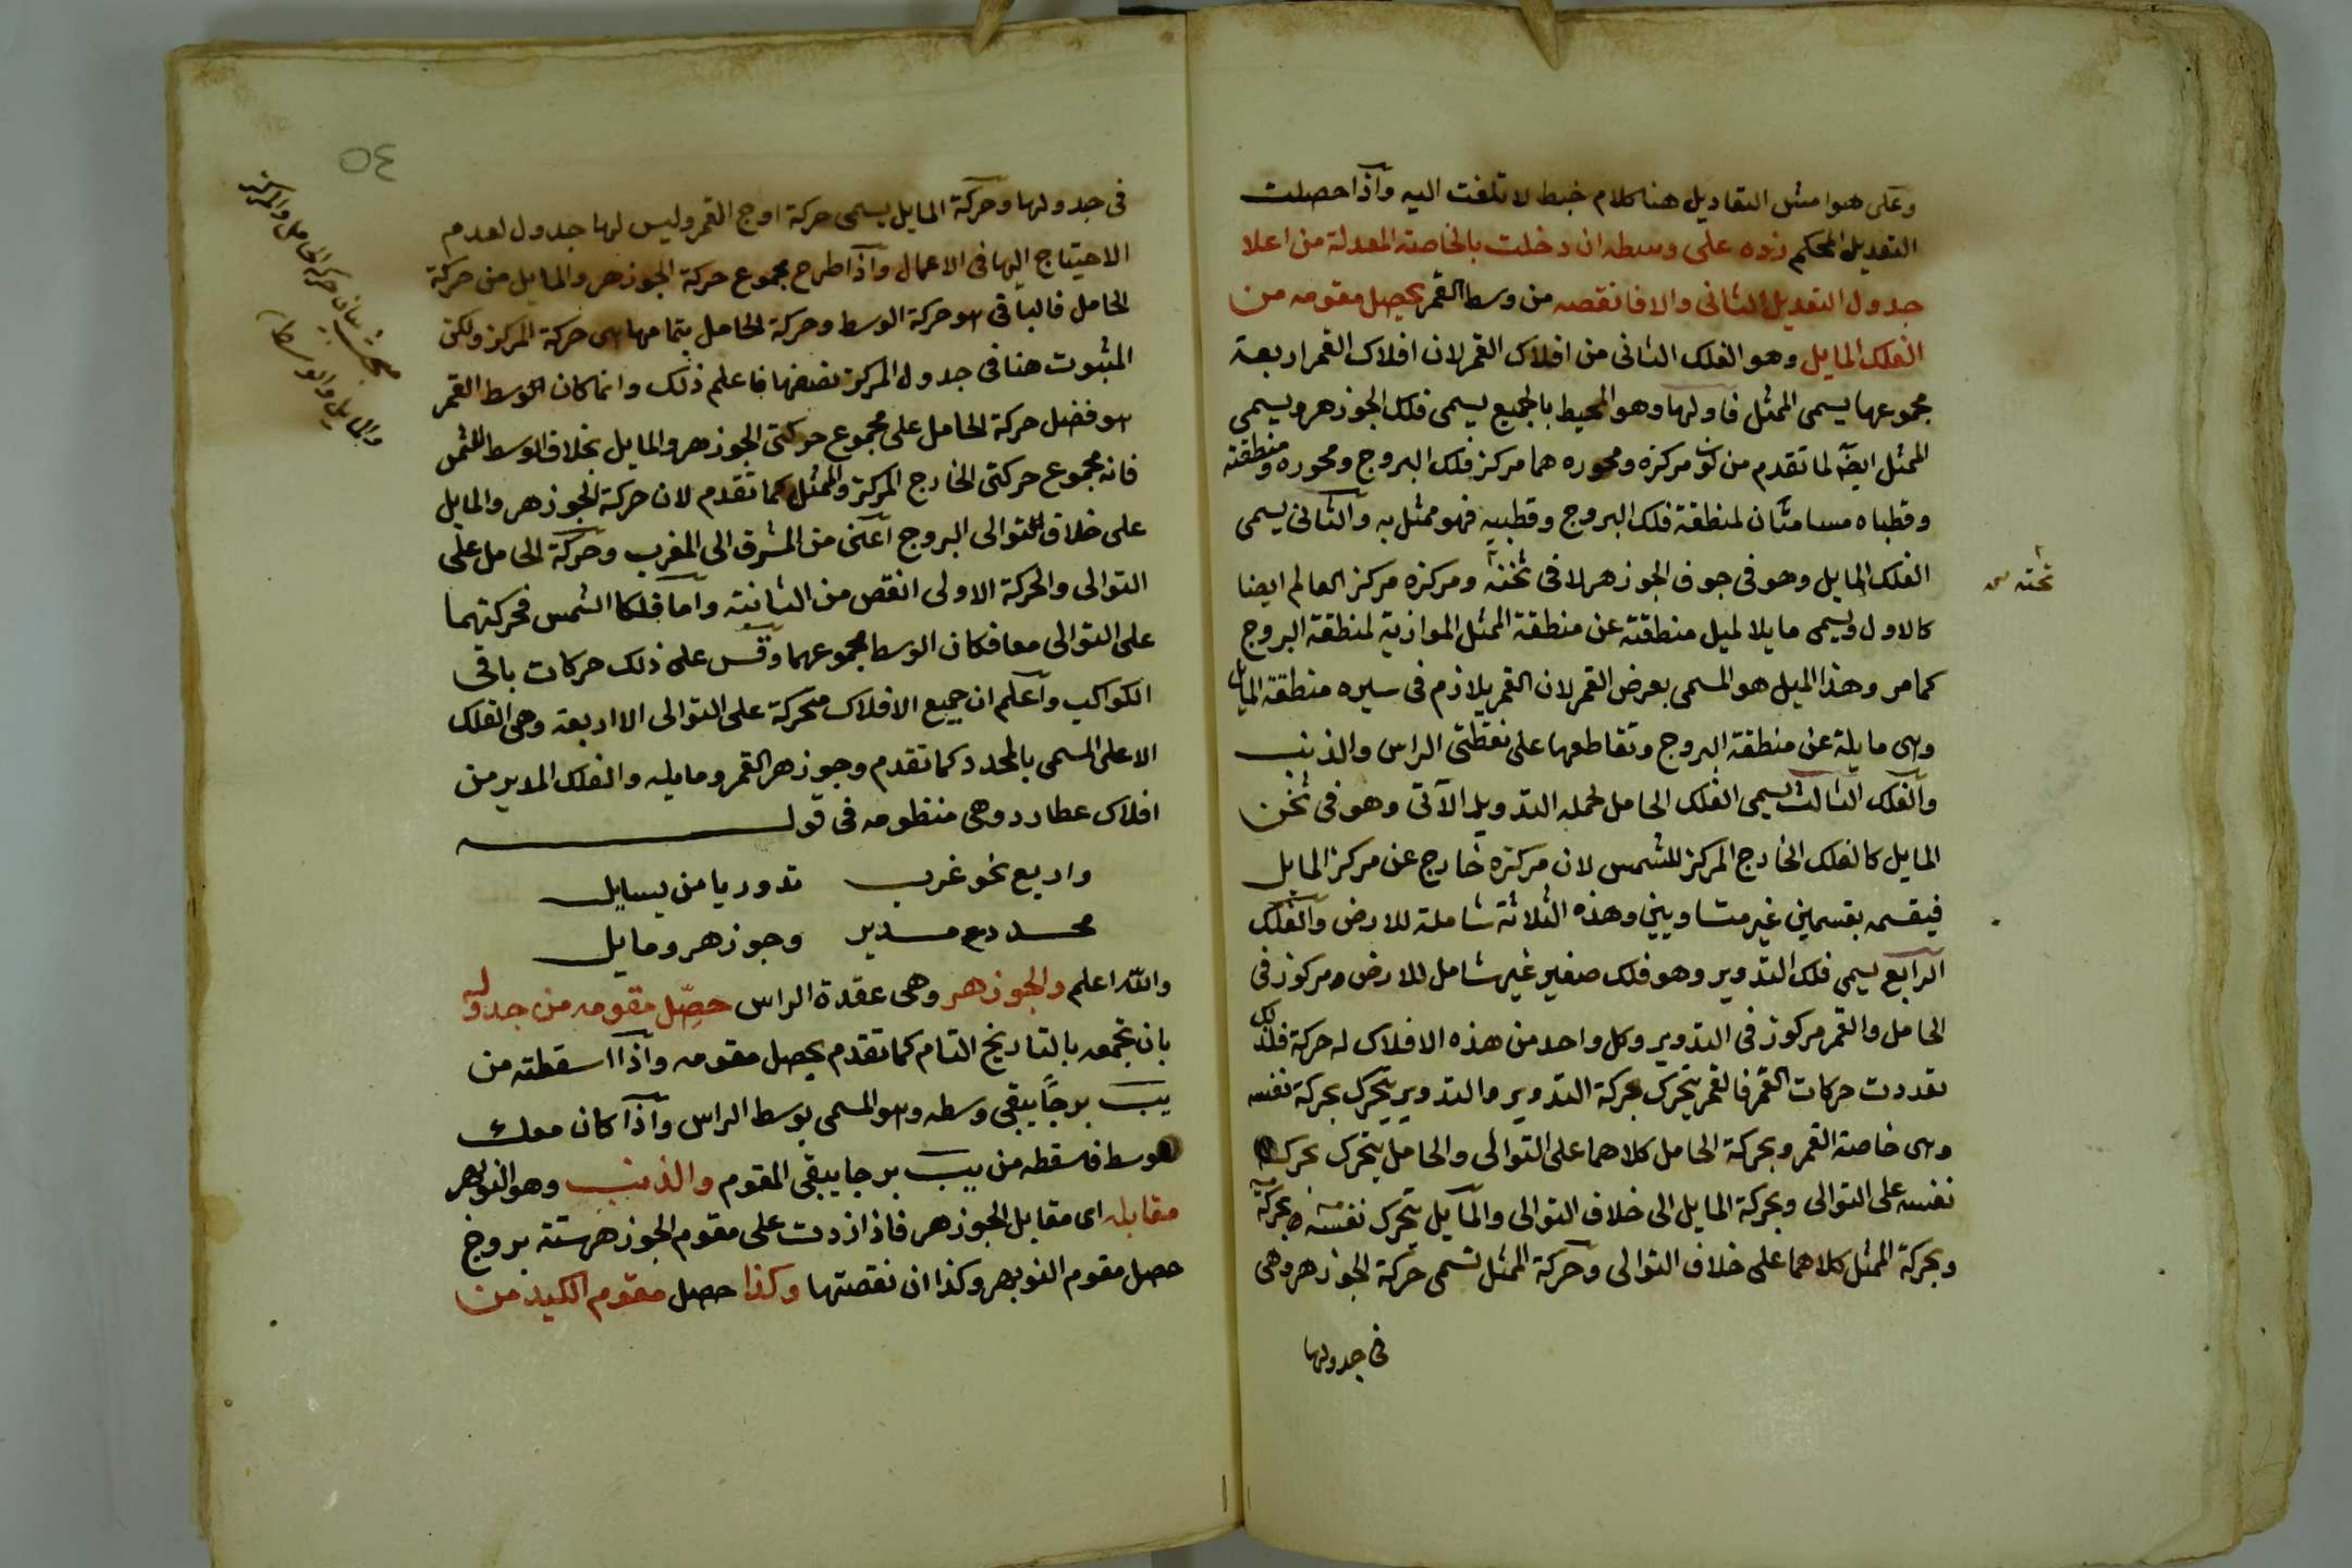 وعلى هوامش التعاديل هنا كلام خبط لا تلفت اليه واذا حصلت
التعديل المحكم زده على وسطه ان دخلت بالخاصة المعدلة من اعلا
جدول التعديل الثانى والا فانقصه من وسط القمر يحصل مقومه من
الفلك المايل وهو الفلك الثانى من افلاك القمر لان افلاك القمر اربعة
مجموعها يسمى الممثل فاولها وهو المحيط بالجميع يسمى فلك الجوزهر ويسمى
الممثل ايضا لما تقدم من كون مركزه ومحوره هما مركز فلك البروج ومحوره ومنطقته
وقطباه مسامتان لمنطقة فلك البروج وقطبيه فهو ممثل به والثانى يسمى
الفلك المايل وهو فى جوف الجوزهر لا فى ثخنه ومركزه مركز العالم ايضا
ثخنه
كالاول ويسمى مايلا لميل منطقته عن منطقة الممثل الموازية لمنطقة البروج
كما مر وهذا الميل هو المسمى بعرض القمر لان القمر يلازم فى سيره منطقة المايل
وهى مايلة عن منطقة البروج وتقاطعها على نقطتى الراس والذنب
والفلك الثالث يسمى الفلك الحامل لحمله التدوير الآتى وهو فى ثخن
المايل كالفلك الخارج المركز للشمس لان مركزه خارج عن مركز المايل
فيقسمه بقسمين غير متساويين وهذه الثلاثة شاملة للارض والفلك
الرابع يسمى فلك التدوير وهو فلك صغير غير شامل للارض ومركوز فى
الحامل والقمر مركوز فى التدوير وكل واحد من هذه الافلاك له حركة فلذلك
تعددت حركات القمر فالقمر يتحرك بحركة التدوير والتدوير يتحرك بحركة نفسه
وهى خاصة القمر وبحركة الحامل كلاهما على التوالى والحامل يتحرك بحركة
نفسه على التوالى وبحركة المايل الى خلاف التوالى والمايل يتحرك بحركة نفسه
وبحركة الممثل كلاهما على خلاف التوالى وحركة الممثل تسمى حركة الجوزهر وهى
فى جدولها
٥٤
فى جدولها وحركة المايل يسمى حركة اوج القمر وليس لها جدول لعدم
الاحتياج اليها فى الاعمال واذا طرح مجموع حركة الجوزهر والمايل من حركة
الحامل فالباقى هو حركة الوسط وحركة الحامل بتمامها هى حركة المركز ولكن
المثبوت هنا فى جدول المركز نصفها فاعلم ذلك وانما كان الوسط القمر
هو فضل حركة الحامل على مجموع حركتى الجوزهر والمايل بخلاف الوسط للشمس
فانه مجموع حركتى الخارج المركز والممثل كما تقدم لان حركة الجوزهر والمايل
على خلاف التوالى البروج اعنى من المشرق الى المغرب وحركة الحامل على
التوالى والحركة الاولى انقص من الثانية واما فلكا الشمس فحركتهما
على التوالى معا فكان الوسط مجموعهما وقس على ذلك حركات باقى
الكواكب واعلم ان جميع الافلاك متحركة على التوالى الا اربعة وهى الفلك
الاعلى المسمى بالمحدد كما تقدم وجوزهر القمر ومايله والفلك المدير من
افلاك عطارد وهى منظومه فى قوله
واربع نحو غرب تدور يا من يسايل
محدد مع مدير وجوزهر ومايل
والله اعلم والجوزهر وهى عقدة الراس حصّل مقومه من جدوله
بان تجمعه بالتاريخ التام كما تقدم يحصل مقومه واذا اسقطته من
يب برجاً يبقى وسطه وهو المسمى بوسط الراس واذا كان معك
الوسط فاسقطه من يب برجا يبقى المقوم والذنب وهو النوبهر
مقابله اى مقابل الجوزهر فاذا زدت على مقوم الجوزهر ستة بروج
حصل مقوم النوبهر وكذا ان نقصتها وكذا حصل مقوم الكيد من